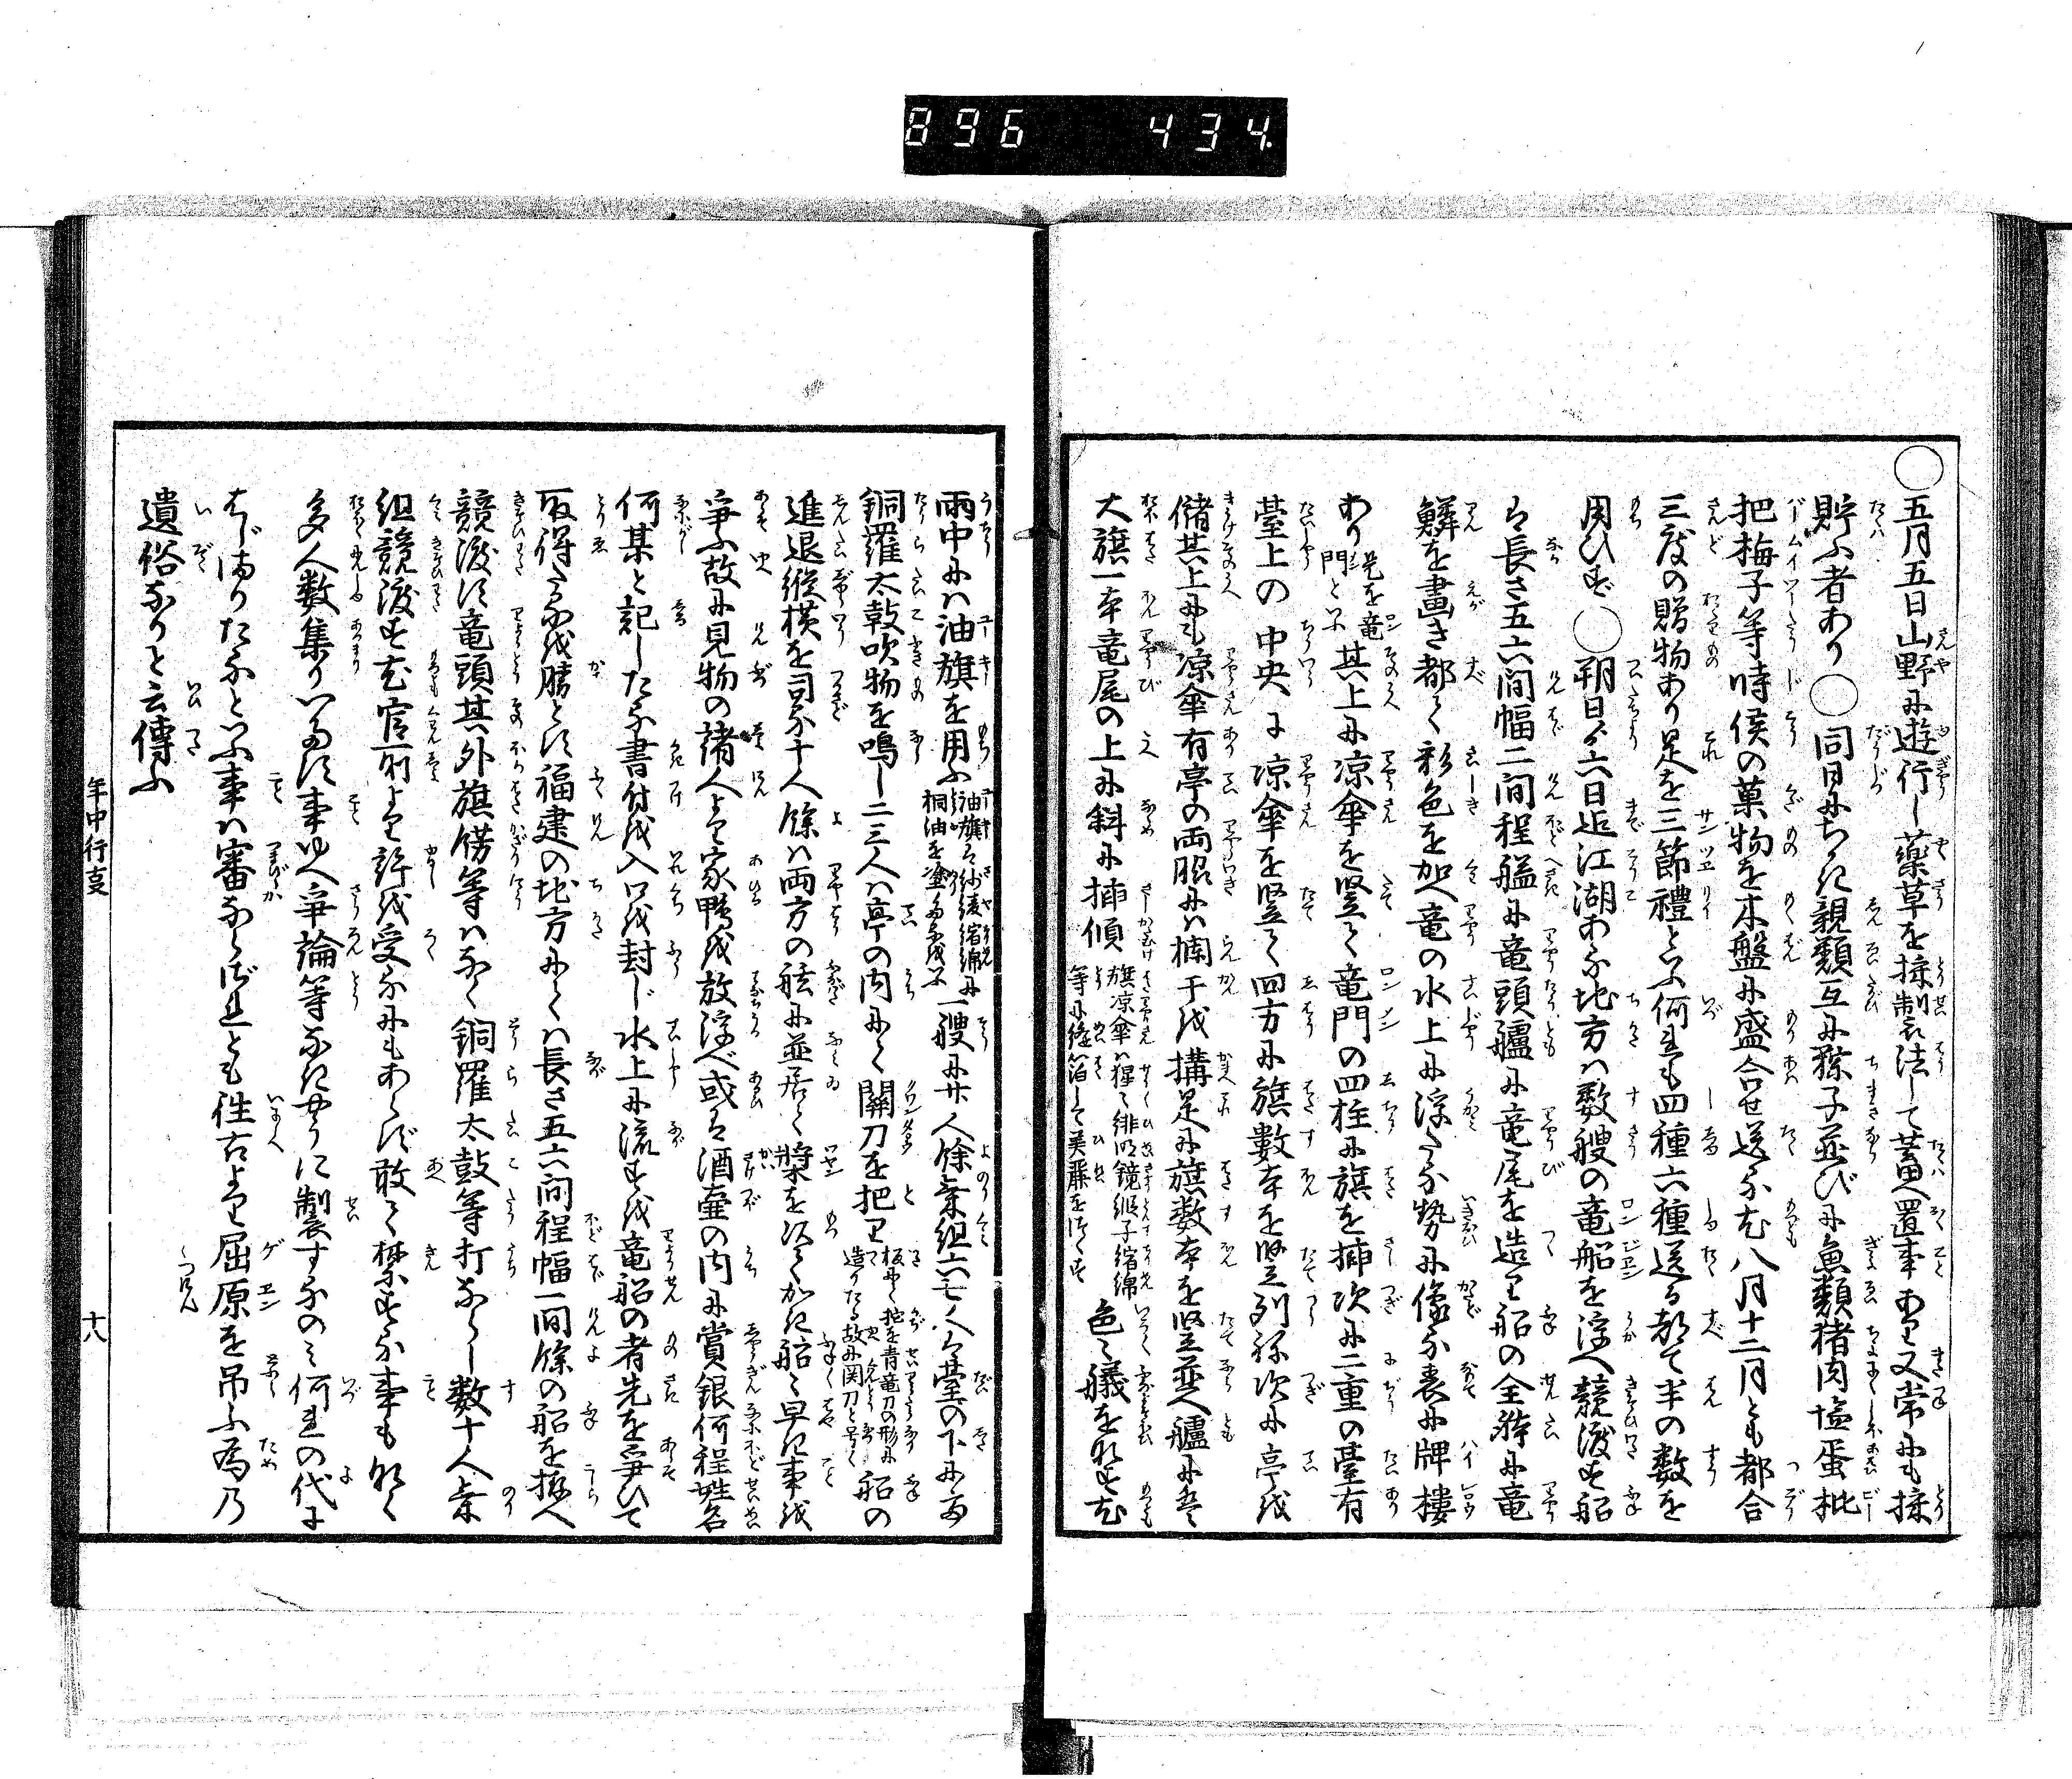 896 434
○五月五日山野に遊行し藥草を採製法して蓄へ置事あり又常にも採
貯ふ者あり○同日にちかき親類互に粽子並びに魚類猪肉塩蛋枇
把梅子等時候の菓物を木盤に盛合せ送る尤八月十二月とも都合
三度の贈物あり是を三節禮といふ何れも四種六種送る都て半の数を
用ひず○朔日ゟ六日迄江湖ある地方は数艘の竜船を浮へ競渡す船
は長さ五六間幅二間程艗に竜頭艫に竜尾を造り船の全躰に竜
鱗を畫き都て彩色を加へ竜の水上に浮たる勢に像る表に牌樓
あり是を竜門といふ其上に凉傘を竪て竜門の四柱に旗を挿次に二重の臺有
臺上の中央に凉傘を竪て四方に旗数本を竪列ね次に亭を
儲其上にも凉傘有亭の両脇は欄干を搆是に旗数本を竪並へ艫に
大旗一本竜尾の上に斜に挿傾旗凉傘は猩々緋哆囉鏡緞子縮綿等に縫箔して美麗をつくす色々艤を飾す尤
雨中には油旗を用ふ油旗は紗綾縮綿に桐油を塗たるをいふ一艘に廿人餘乗組六七人は臺の下にて
銅羅太鼓吹物を鳴し二三人は亭の内にて關刀を把り板にて拵へ青竜刀の形に造りたる故に関刀と号く船の
進退縦横を司る十人餘は両方の舷に並居て槳を以てかき船々早き事を
爭ふ故に見物の諸人より家鴨を放浮べ或は酒壷の内に賞銀何程姓名
何某と記したる書付を入口を封じ水上に流すを竜船の者先を爭ひて
取得たるを勝とす福建の地方にては長さ五六間程幅一間餘の船を拵へ
競渡す竜頭其外旗傍等はなく銅羅太鼓等打ならし数十人乗
組競渡す尤官所より許を受るにもあらず敢て禁ずる事もなく
多人数集りいたす事ゆへ爭論等なきやうに製するのみ何れの代に
はじまりたるといふ事は審ならざれとも往古より屈原を吊ふ為の
遺俗なりと云傳ふ
年中行支
十八